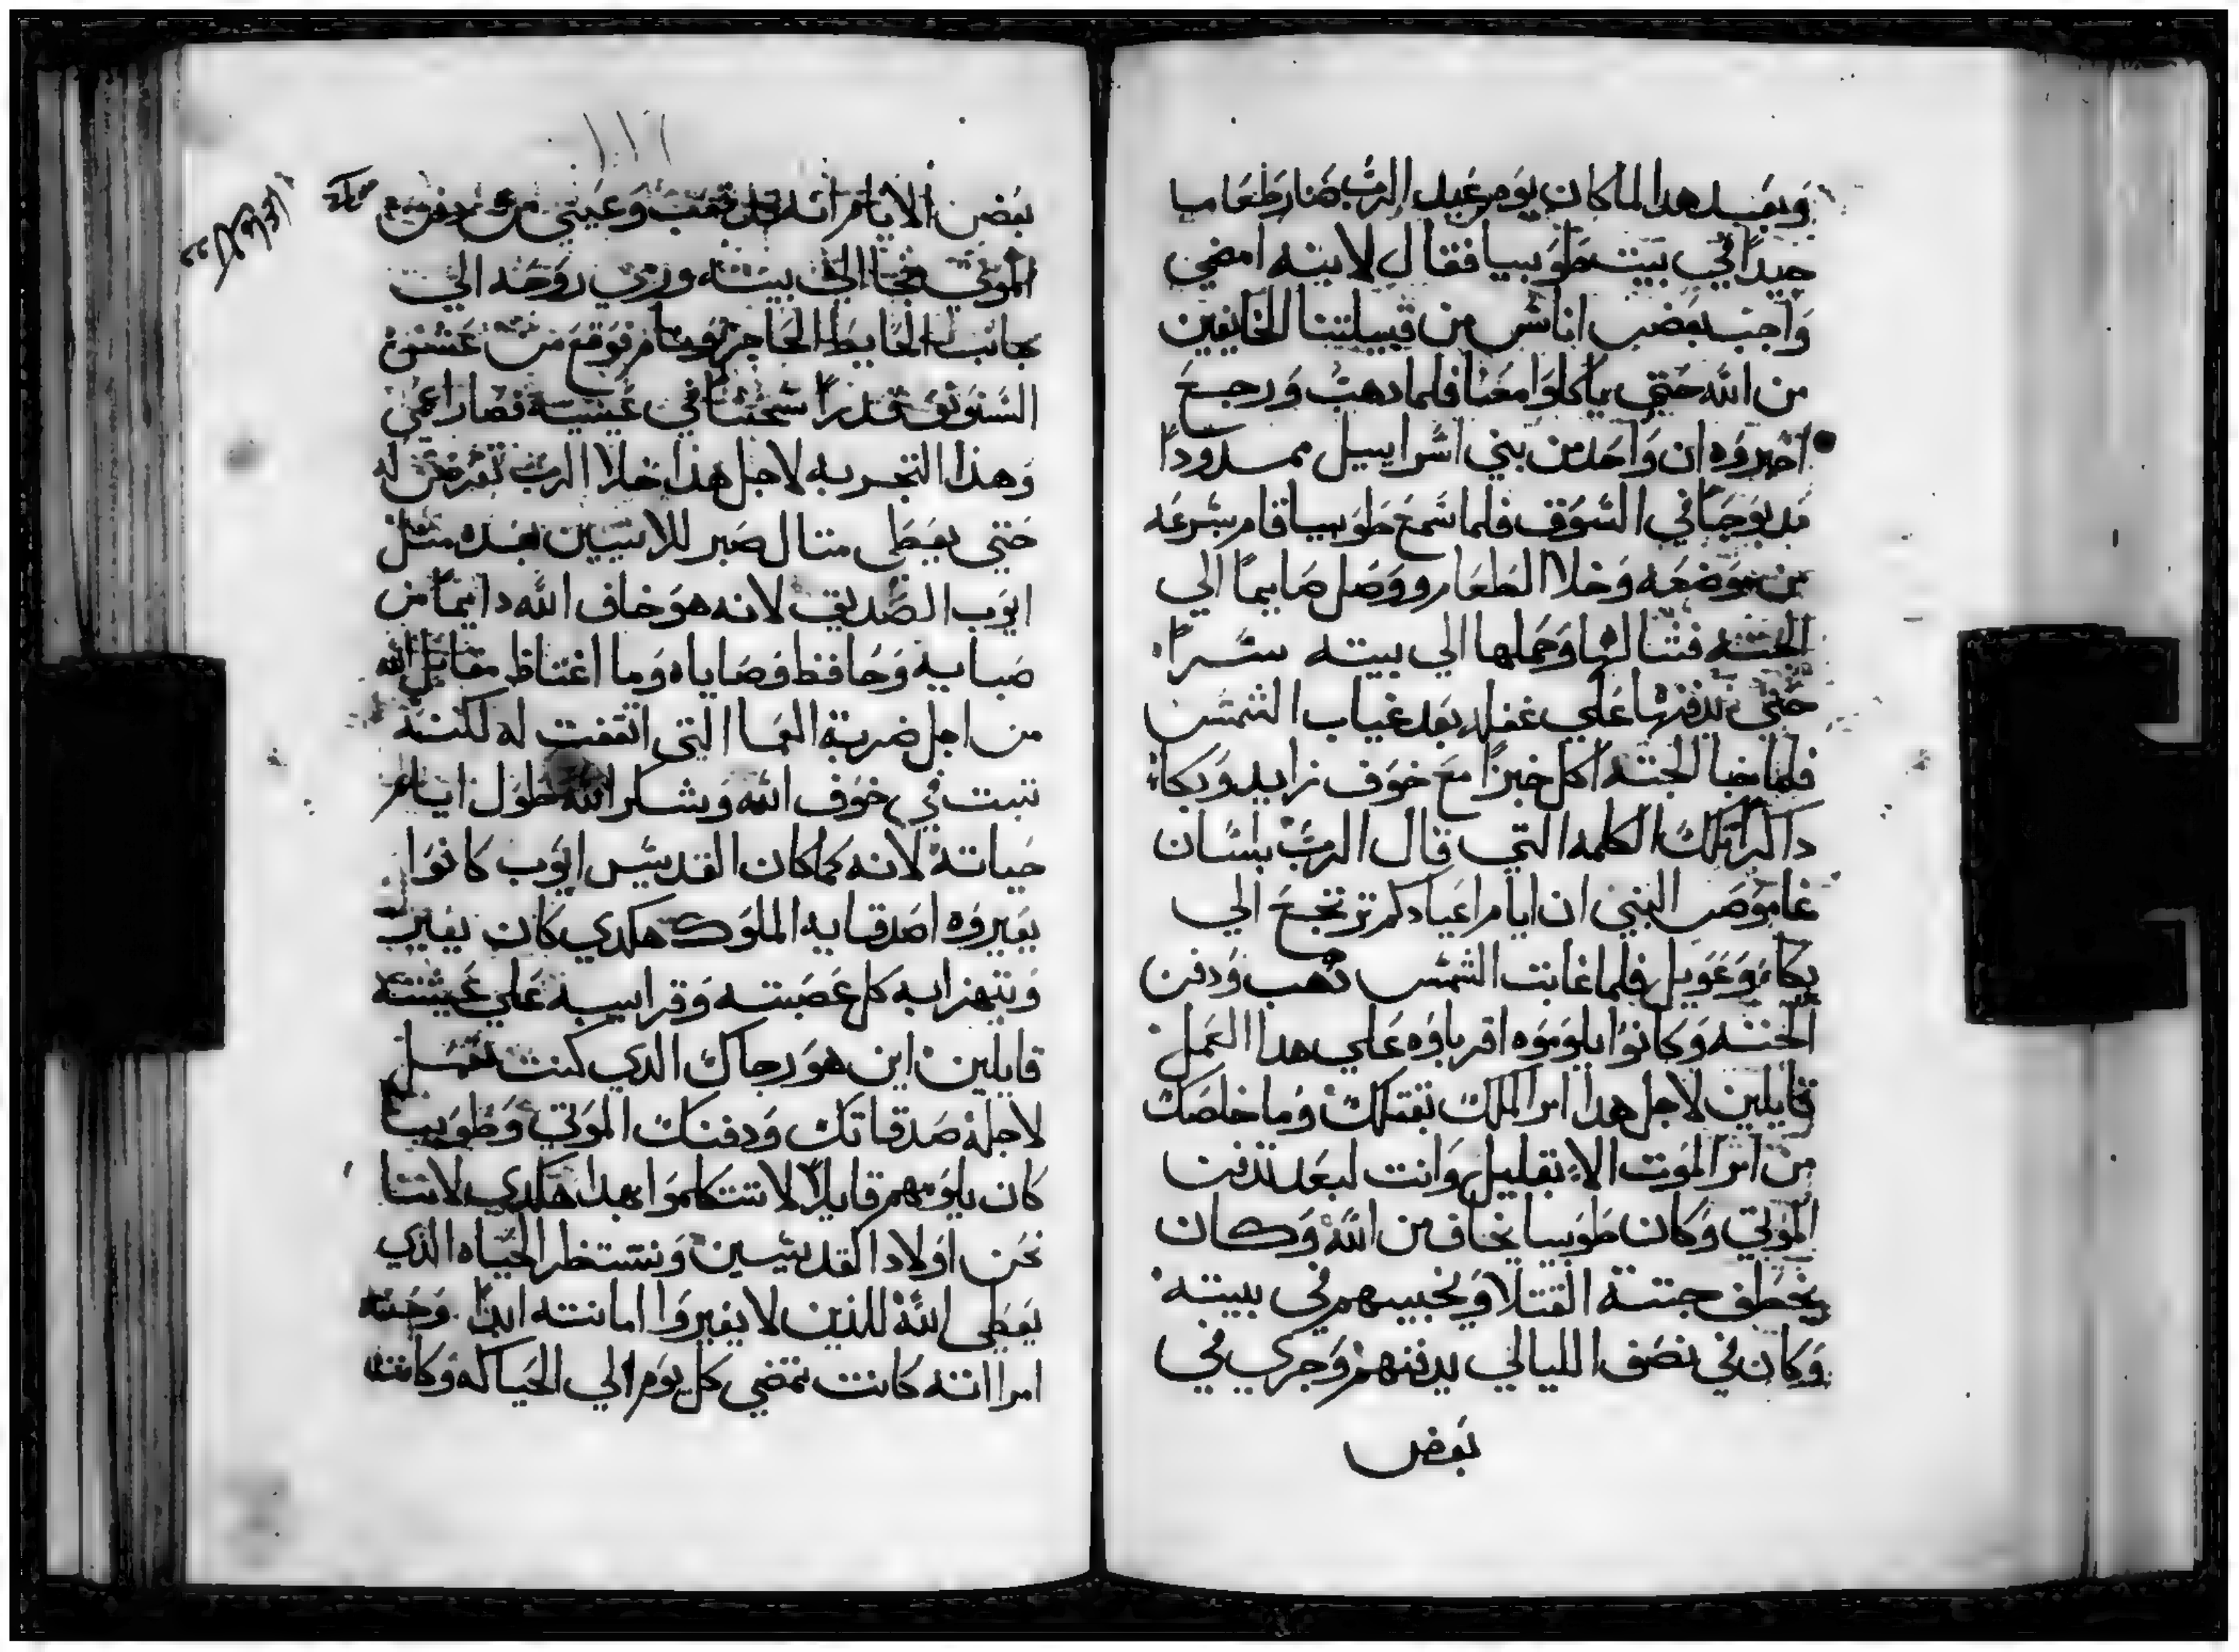 وبعد هدا لما كان يوم عيد الرب صار طعاما
جيدا في بيت طوبيا فقال لابنه امضي
واجب بعض اناس من قبيلتنا الخايفين
من الله حتي ياكلوا معنا فلما دهب ورجع
اخبروه ان واحد من بني اسراييل ممدودا
مدبوحا في السوق فلما سمع طوبيا قام بسرعه
من موضعه وخلا الطعام ووصل صايما الي
الجثه فتنالها وحملها الي بيته سرا
حتي يدفنها علي غفله بعد غياب الشمس
فلما خبا الجثه اكل خبزا مع خوف زايد وبكاء
داكرا تلك الكلمه التي قال الرب بلسان
غاموص النبي ان ايام اعيادكم ترتجع الي
بكاء وعويل فلما غابت الشمس دهب ودفن
الجثه وكانوا يلوموه اقرباوه علي هدا العمل
قايلين لاجل هدا امر الملك بقتلك وما خلصك
من امر الموت الا بقليل وانت لبعد تدفن
الموتي وكان طوبيا يخاف من الله وكان
يخطف جتتة القتلا ويخبيهم في بيته
وكان في نصف الليالي يدفنهم وجري في
بعض
١١٦
بعض الايام انه قد تعب وعيي من دفن
الموتي فجا الي بيته ورمي روحه الي
جانب الحايط الحاجز ونام فوقع من عش
السنونو قدرا سخنا في عينيه فصار اعمي
وهذا التجربه لاجل هذا خلا الرب تعرض له
حتي يعطي متال صبر للاتيين بعده مثل
ايوب الصديق لانه هو خاف الله دايما من
صبايه وحافظ وصاياه وما اغتاظ مقابل الله
من اجل ضربة العما التي اتفقت له لكنه
تبت في خوف الله وشكر الله طول ايام
حياته لانه كما كان القديس ايوب كانوا
يعيروه اصدقايه الملوك هكدي كان يعير
ويتهزا به كل عصبته وقراييبه علي عيشته
قايلين اين هو رجاك الدي كنت تعمل
لاجله صدقاتك ودفنك الموتي وطوبيا
كان يلومهم قايلا لا تتكلموا بهدا هكدي لاننا
نحن اولاد القديسين وننتظر الحياه الذي
يعطي الله للذين لا يغيروا امانته ابدا وحنه
امراته كانت تمضي كل يوم الي الحياكه وكانت